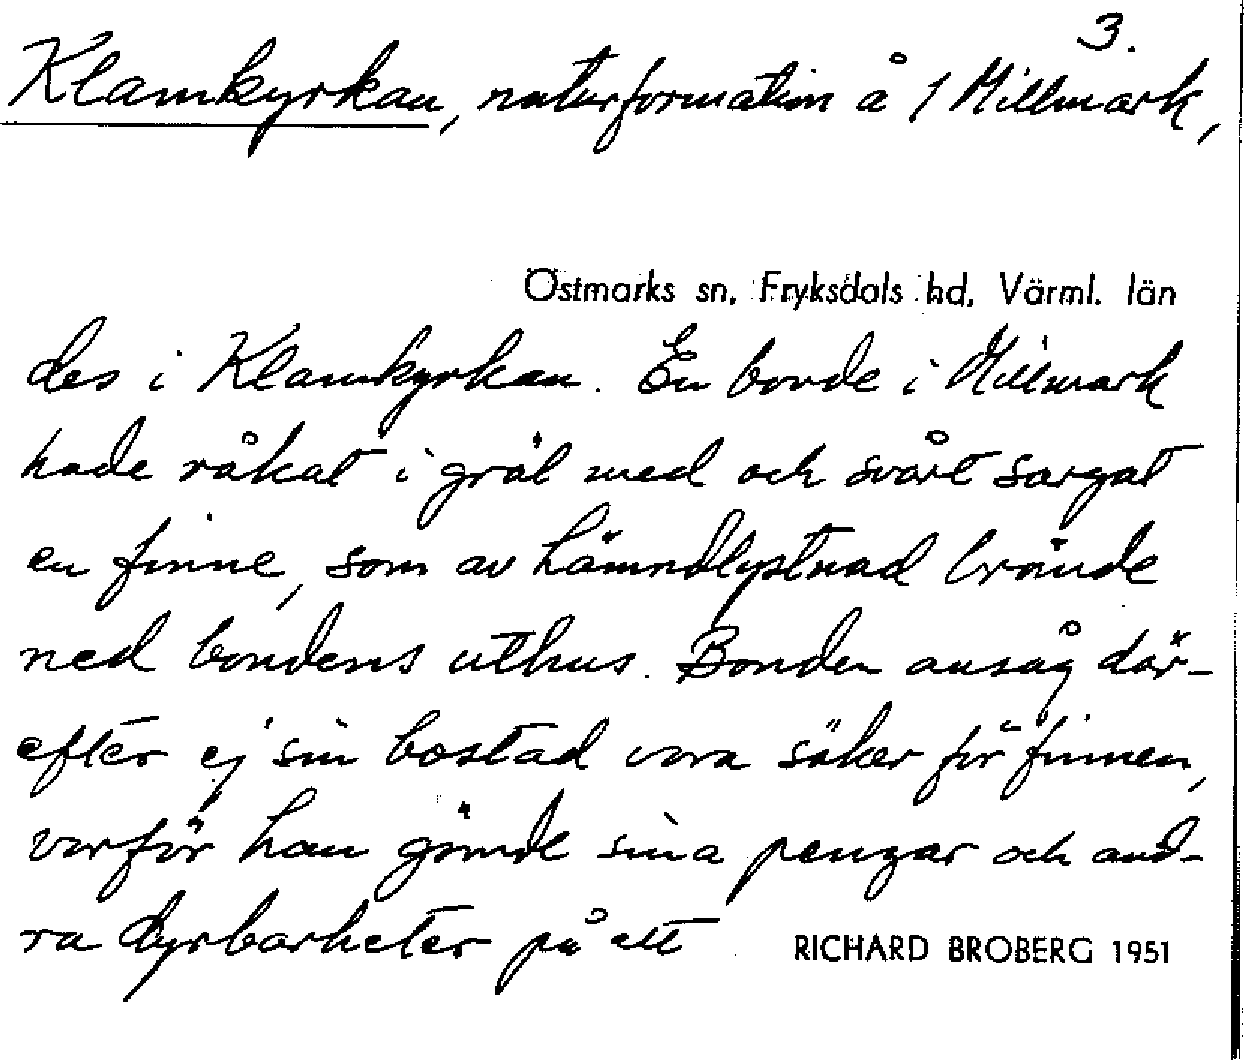 3.
Klamkyrkan, naturformation å 1 Millmark,
Östmarks sn, Fryksdals hd, Värml. län
des i Klamkyrkan. En bonde i Millmark
hade råkat i gräl med och svårt sargat
en finne, som av hämndlystnad brände
ned bondens uthus. Bonden ansåg där-
efter ej sin bostad vara säker för finnen,
varför han gömde sina pengar och and-
ra dyrbarheter på ett
RICHARD BROBERG 1951